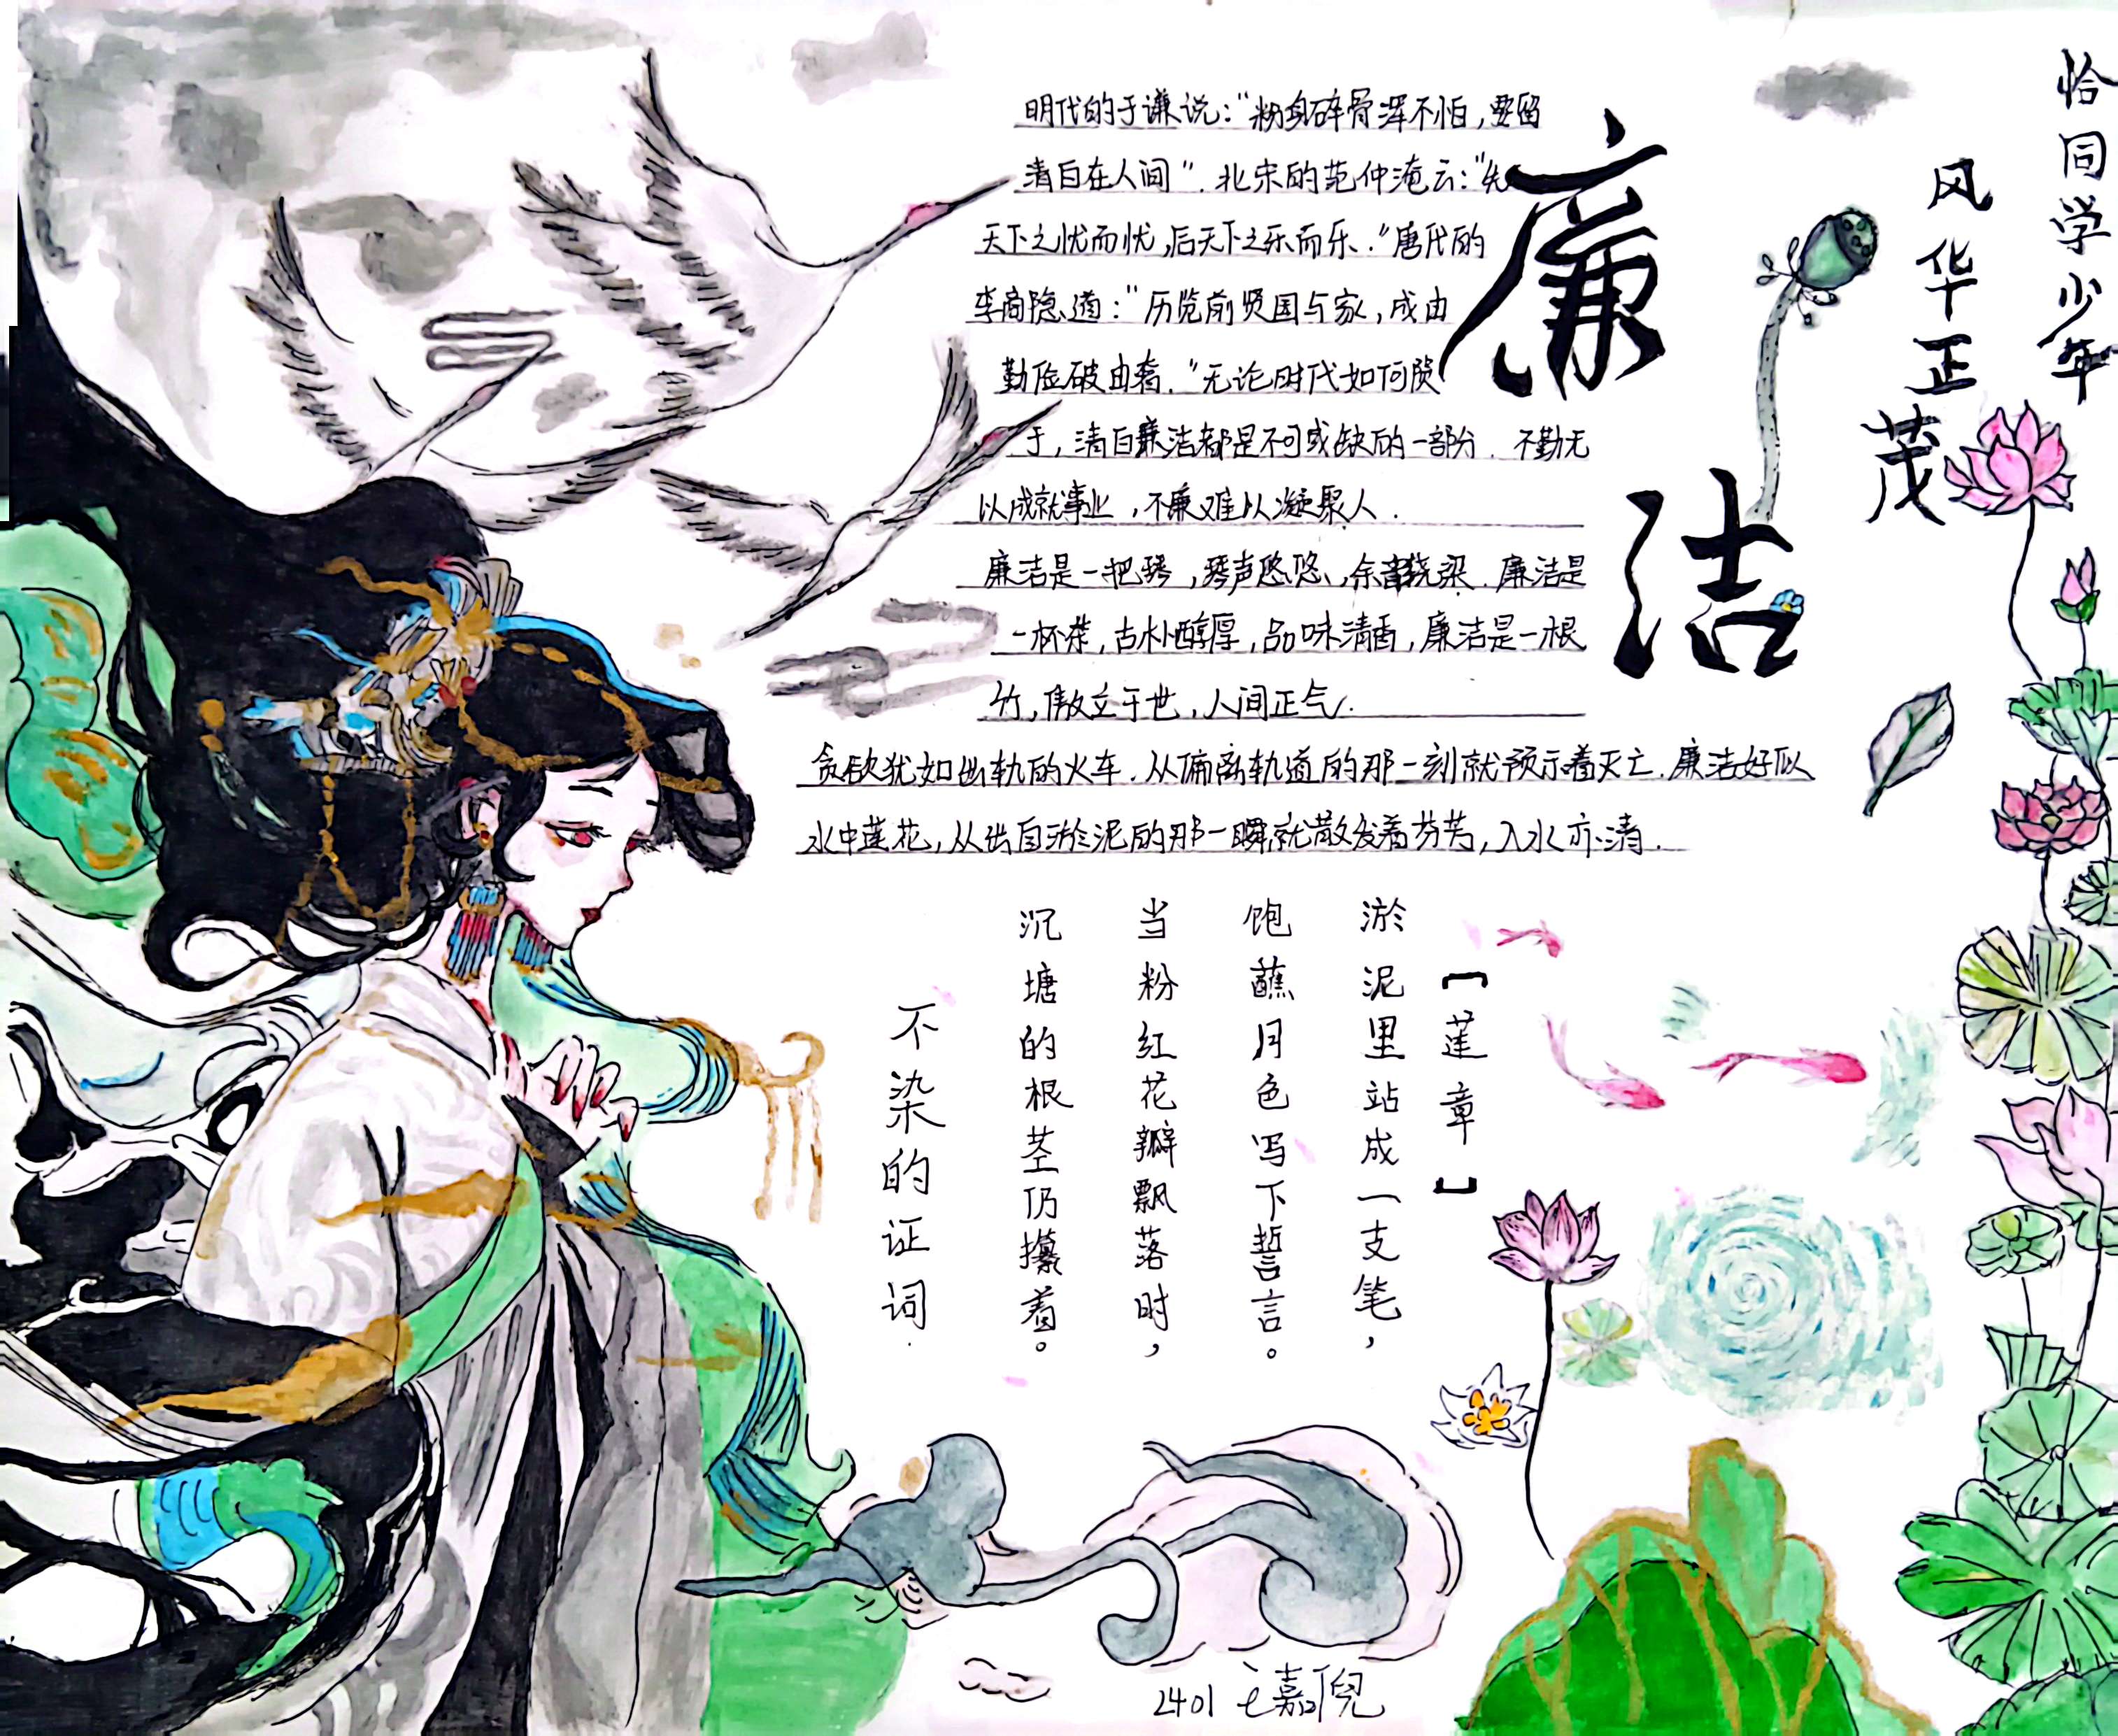 恰同学少年
风华正茂
廉洁
明代的于谦说：“粉身碎骨浑不怕，要留
清白在人间”．北宋的范仲淹云：“先
天下之忧而忧，后天下之乐而乐．”唐代的
李商隐道：“历览前贤国与家，成由
勤俭破由奢．”无论时代如何
于，清白廉洁都是不可或缺的一部分．不勤无
以成就事业，不廉难以凝聚人．
廉洁是一把琴，琴声悠悠，余音绕梁．廉洁是
一杯茶，古朴醇厚，品味清香，廉洁是一根
竹，傲立于世，人间正气．
贪欲犹如出轨的火车．从偏离轨道的那一刻就预示着灭亡．廉洁好似
水中莲花，从出自淤泥的那一瞬就散发着芬芳，入水亦清．
【莲章】
淤泥里站成一支笔，
饱蘸月色写下誓言。
当粉红花瓣飘落时，
沉塘的根茎仍攥着。
不染的证词．
2401 王嘉倪